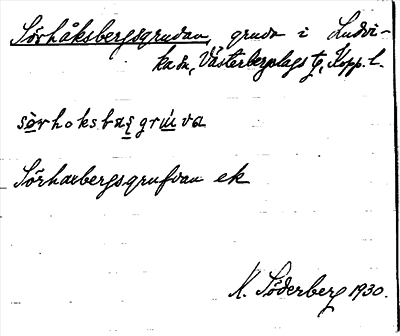 Sörhåksbergsgruvan, gruva i Ludvi-
ka sn, Västerbergslags tg, Kopp. l.
sörhoksbærggrúva
Sörhaxbergsgrufvan ek
K. Söderberg 1930.